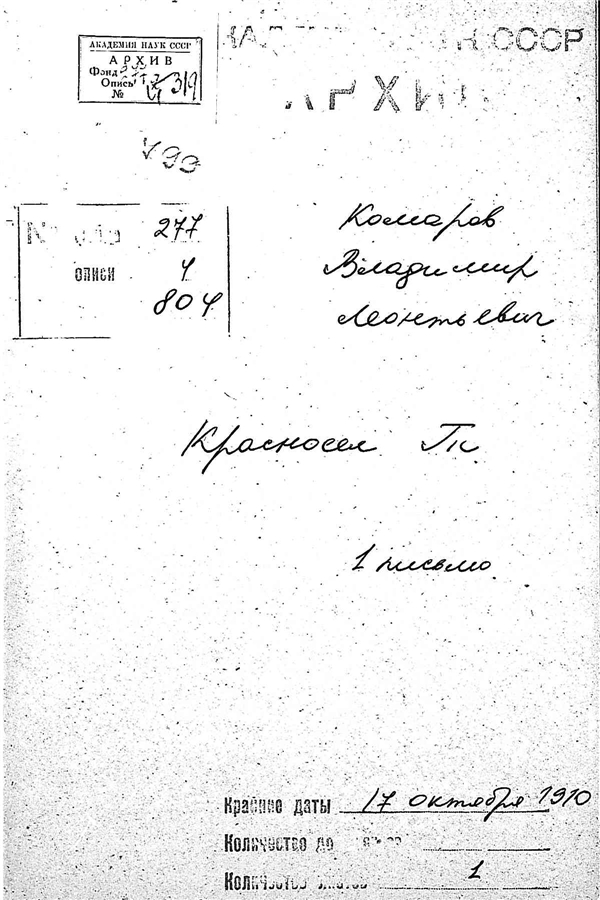 АКАДЕМИЯ НАУК СССР
АРХИВ
Фонд
Опись
№ 319
СССР
АРХИВ
277
описи 4
804
Комаров
Владимир
Леонтьевич
Красносел
1 письмо
Крайние даты 17 октября 1910
Количество
Количество листов 1